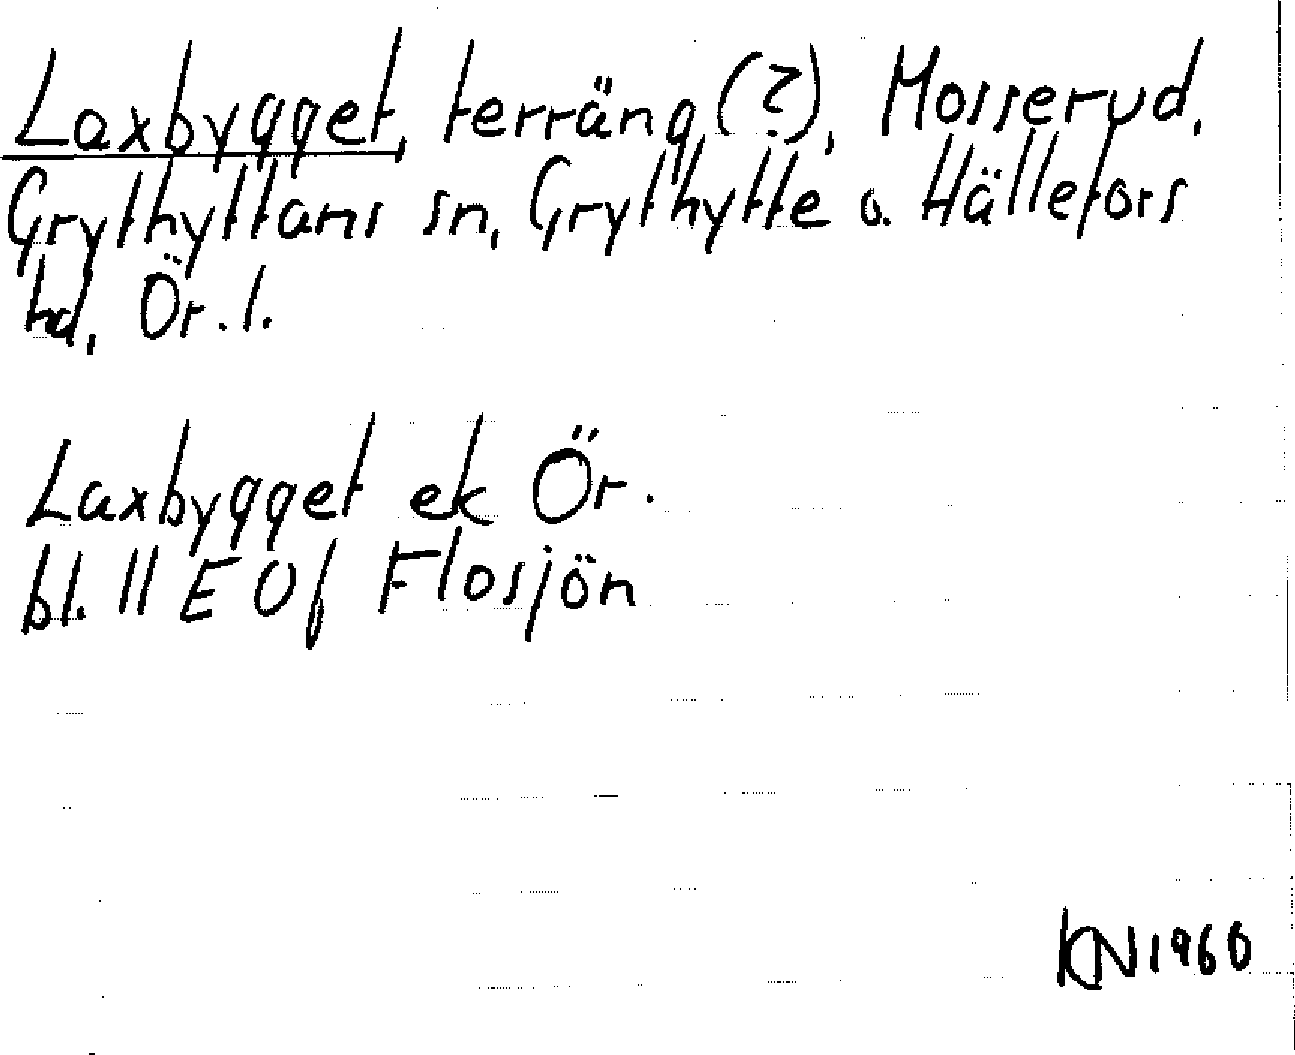 Laxbygget, terräng(?), Mosserud,
Grythyttans sn, Grythytte o. Hällefors
hd, Ör. l.
Laxbygget ek Ör.
bl. 11 E Of Flosjön
KN 1960